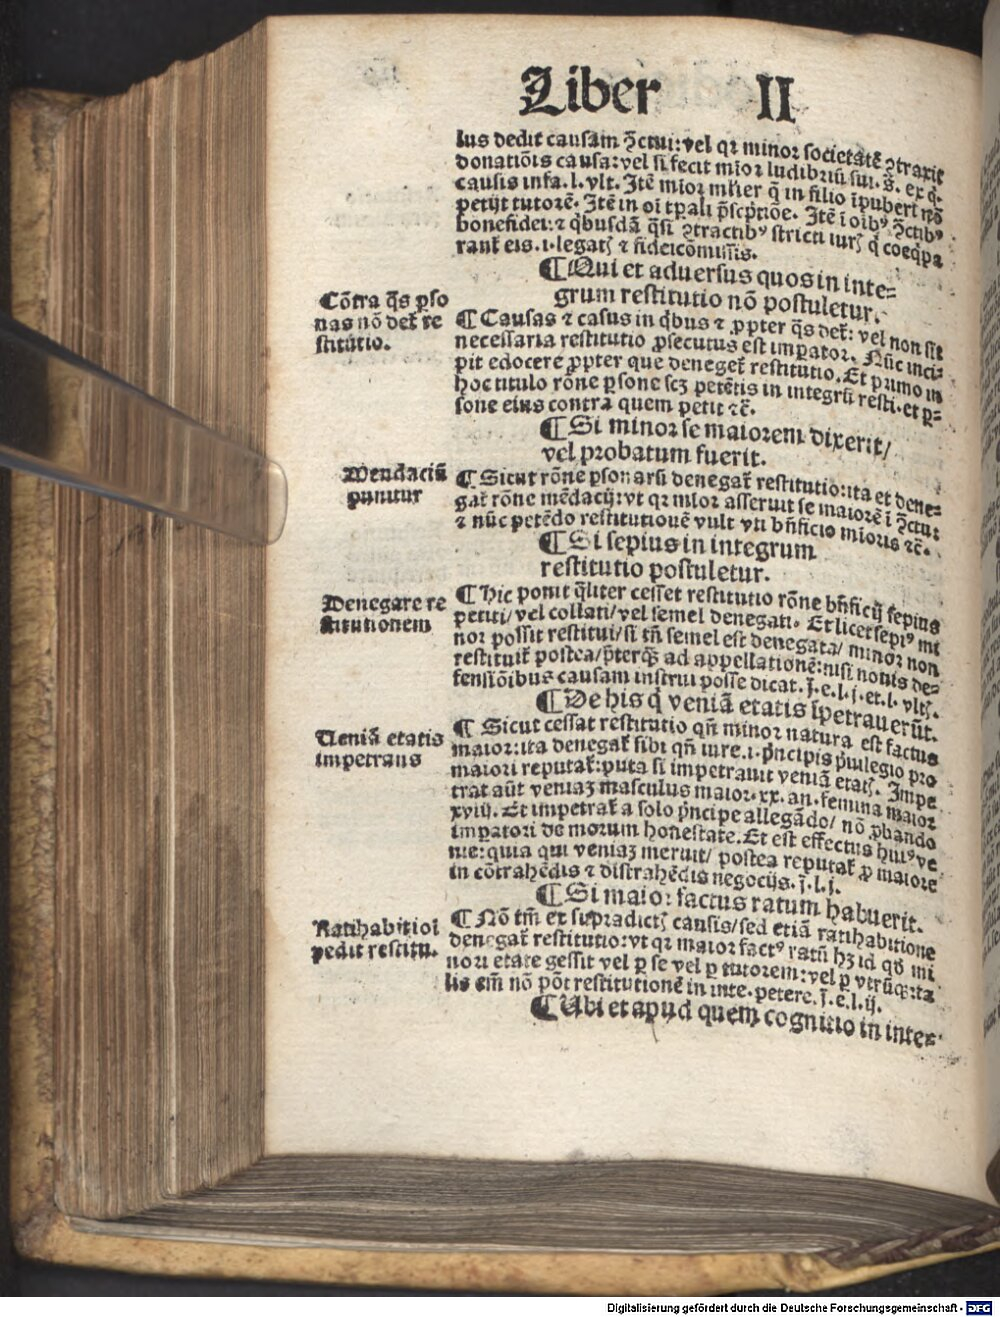 Liber II
lus dedit causam ꝯctui: vel qꝛ minor societatē ꝯtraxit
donatiōis causa: vel si fecit mīor ludibriū sui. s̄. ex q̄.
causis infra. l. vlt. Itē mīor mr̄ier q̄ in filio īpuberi nō
petijt tutorē. Itē in oī tp̄ali p̄scptiōe. Itē ī oībꝰ ꝯctibꝰ
bonefidei: ⁊ qͥbusdā q̄si ꝯtractibꝰ stricti iurꝭ q̄ coeqͥpa
rant̄ eis. i. legatꝭ ⁊ fideicōmissis.
¶ Qui et aduersus quos in inte⸗
grum restitutio nō postuletur.
Cōtra q̄s ꝑso
nas nō det̄ re
stitutio.
¶ Causas ⁊ casus in qͥbus ⁊ ꝓpter q̄s det̄: vel non sit
necessaria restitutio ꝓsecutus est imꝑator. Nūc inci⸗
pit edocere ꝓpter que deneget̄ restitutio. Et primo in
hoc titulo rōne ꝑsone scꝫ petētis in integrū resti. et ꝑ⸗
sone eius contra quem petit ⁊c̄.
¶ Si minor se maiorem dixerit/
vel probatum fuerit.
Mendaciū
punitur
¶ Sicut rōne ꝑsonarū denegat̄ restitutio: ita et dene⸗
gat̄ rōne mēdacij: vt qꝛ mīor asseruit se maiorē ī ꝯctu:
⁊ nūc petēdo restitutionē vult vti bn̄ficio mīoris ⁊c̄.
¶ Si sepius in integrum
restitutio postuletur.
Denegare re
stitutionem
¶ Hic ponit qͣliter cesset restitutio rōne bn̄ficij sepius
petiti/ vel collati/ vel semel denegati. Et licet sepiꝰ mi
nor possit restitui/ si tn̄ semel est denegata/ minor non
restituit̄ postea/ p̄terqͣꝫ ad appellationē: nisi nouis de⸗
fensiōibus causam instrui posse dicat. j̄. e. l. j. et. l. vltꝭ.
¶ De his q̄ veniā etatis īpetrauerūt.
Ueniā etatis
impetrans
¶ Sicut cessat restitutio qn̄ minor natura est factus
maior: ita denegat̄ sibi qn̄ iure. i. p̄ncipis p̄uilegio pro
maiori reputat̄: puta si impetrauit veniā etatꝭ. Impe
trat aūt veniaꝫ masculus maior. xx. an. femina maior
xviij. Et impetrat̄ a solo p̄ncipe allegādo/ nō ꝓbando
imꝑatori de morum honestate. Et est effectus huiꝰ ve
nie: quia qui veniaꝫ meruit/ postea reputat̄ ꝓ maiore
in cōtrahēdis ⁊ distrahēdis negocijs. j̄. l. j.
¶ Si maior factus ratum habuerit.
Ratihabitio ī
pedit restitu.
¶ Nō tm̄ ex supradictꝭ causis/ sed etiā ratihabitione
denegat̄ restitutio: vt qꝛ maior factꝰ ratū hꝫ id qd̄ mi
nori etate gessit vel ꝑ se vel ꝑ tutorem: vel ꝑ vtrūqꝫ: ta
lis em̄ nō pōt restitutionē in inte. petere. j̄. e. l. ij.
¶ Ubi et apud quem cognitio in inter⸗
Digitalisierung gefördert durch die Deutsche Forschungsgemeinschaft - DFG